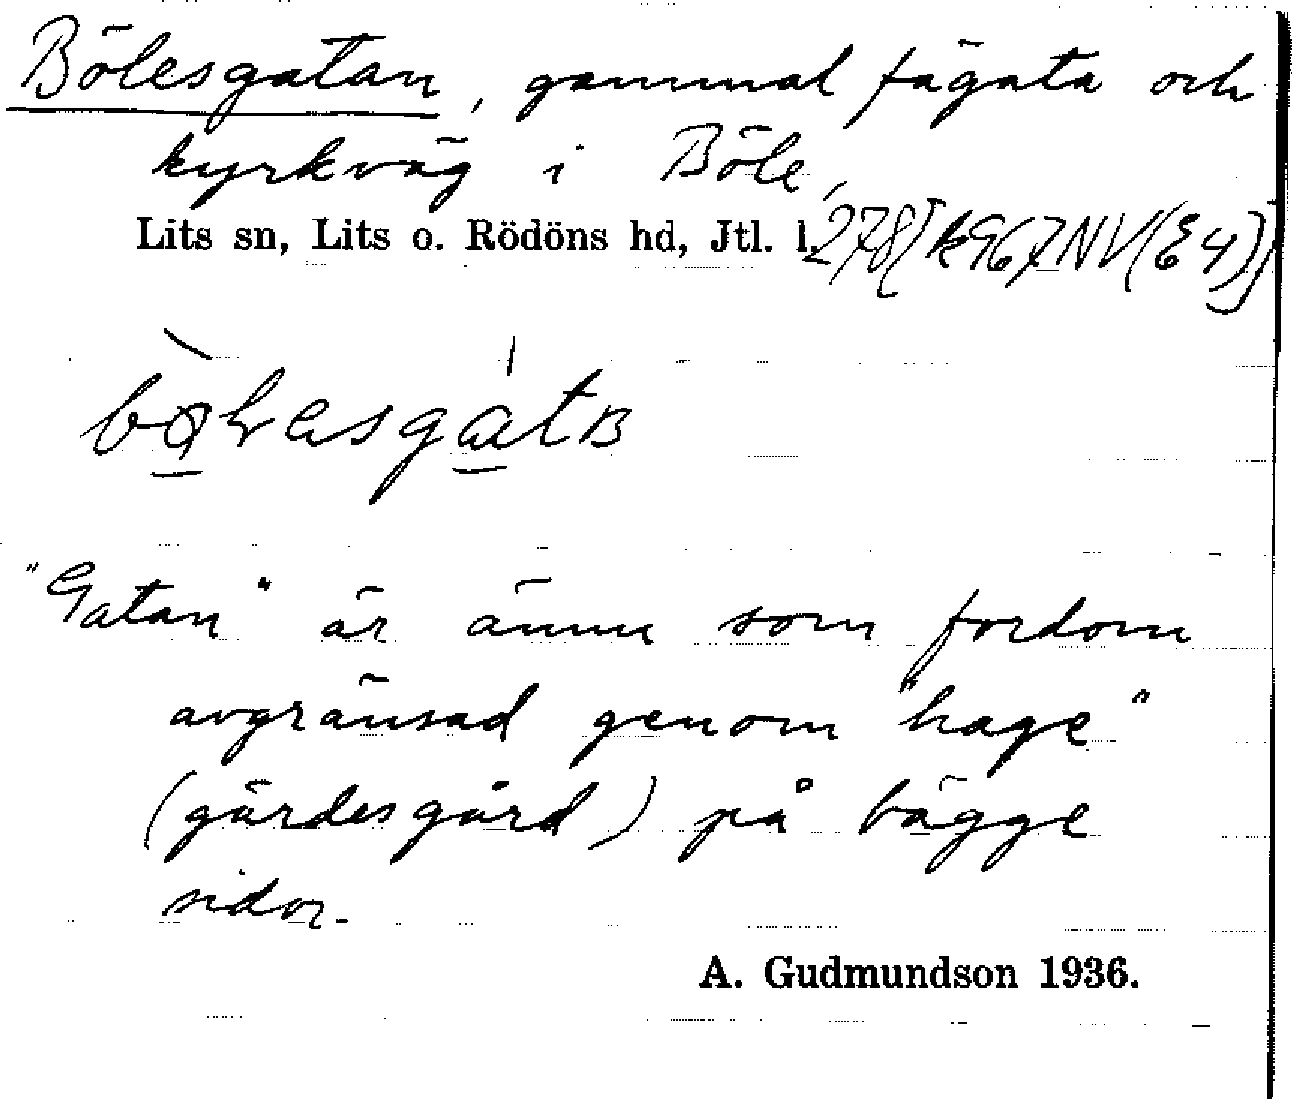 Bölesgatan, gammal fägata och
kyrkväg i Böle,
Lits sn, Lits o. Rödöns hd, Jtl. l.
"Gatan" är ännu som fordom
avgränsad genom "hage"
(gärdesgård) på bägge
sidor.
A. Gudmundson 1936.